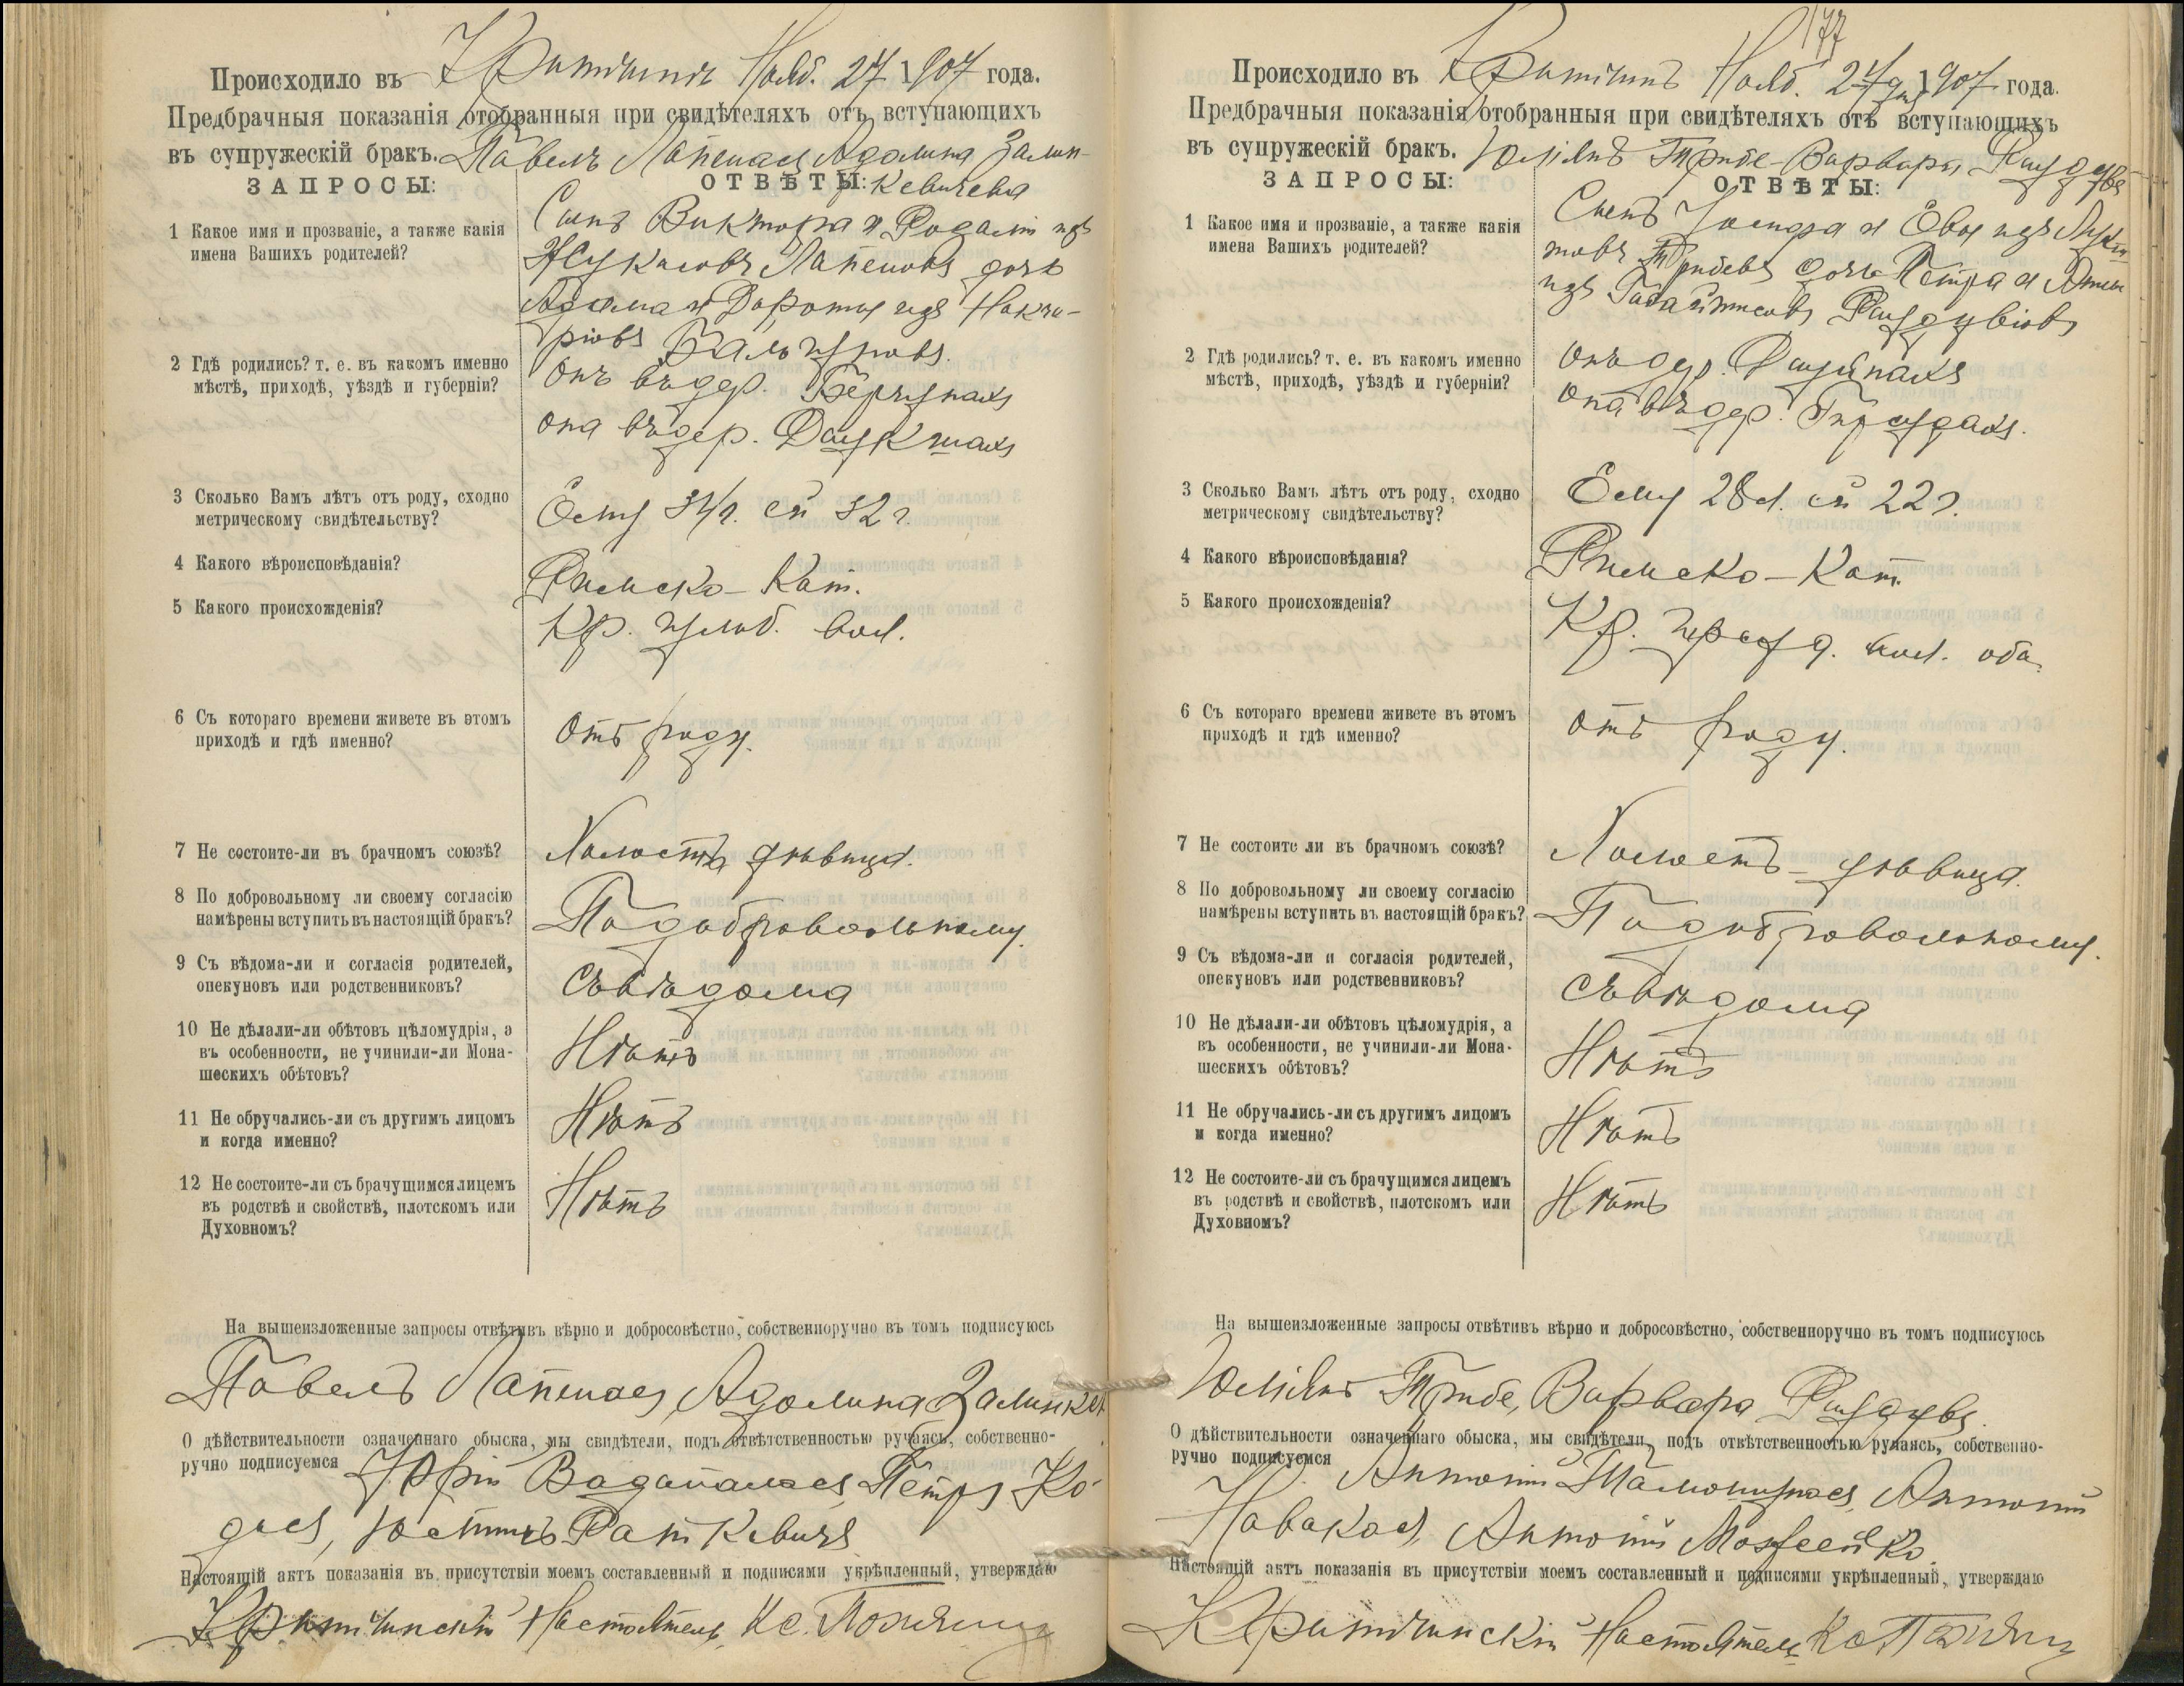 Происходило въ Нояб. 27 1907 года.
Предбрачныя показанія отобранныя при свидѣтеляхъ отъ вступающихъ
въ супружескій бракъ. Павелъ Адолина Залин-
ЗАПРОСЫ: ОТВѢТЫ: кевичевна
1 Какое имя и прозваніе, а также какія
имена Вашихъ родителей?
Сынъ Виктора и Розаліи изъ
дочь
Адама и Дороты изъ
2 Гдѣ родились? т. е. въ какомъ именно
мѣстѣ, приходѣ, уѣздѣ и губерніи?
Онъ въ дер.
Она въ дер. Даукшахъ
3 Сколько Вамъ лѣтъ отъ роду, сходно
метрическому свидѣтельству?
Ему ей 32 г.
4 Какого вѣроисповѣданія?
Римско-Кат.
5 Какого происхожденія?
Кр. вол.
6 Съ котораго времени живете въ этомъ
приходѣ и гдѣ именно?
Отъ роду.
7 Не состоите-ли въ брачномъ союзѣ?
Холостъ дѣвица.
8 По добровольному ли своему согласію
намѣрены вступить въ настоящій бракъ?
По добровольному.
9 Съ вѣдома-ли и согласія родителей,
опекуновъ или родственниковъ?
Съ вѣдома
10 Не дѣлали-ли обѣтовъ цѣломудрія, а
въ особенности, не учинили-ли Мона-
шескихъ обѣтовъ?
Нѣтъ
11 Не обручались-ли съ другимъ лицомъ
и когда именно?
Нѣтъ
12 Не состоите-ли съ брачущимся лицемъ
въ родствѣ и свойствѣ, плотскомъ или
Духовномъ?
Нѣтъ
На вышеизложенные запросы отвѣтивъ вѣрно и добросовѣстно, собственноручно въ томъ подписуюсь
Павелъ Адолина
О дѣйствительности означеннаго обыска, мы свидѣтели, подъ отвѣтственностью ручаясь, собственно-
ручно подписуемся Петръ
Юстинъ Раткевичъ
Настоящій актъ показанія въ присутствіи моемъ составленный и подписями укрѣпленный, утверждаю
Настоятель Кс.
177
Происходило въ Нояб. 27 1907 года.
Предбрачныя показанія отобранныя при свидѣтеляхъ отъ вступающихъ
въ супружескій бракъ. Юліянъ Варвара
ЗАПРОСЫ: ОТВѢТЫ:
1 Какое имя и прозваніе, а также какія
имена Вашихъ родителей?
Сынъ и Евы изъ
дочь Петра и Анны
изъ
2 Гдѣ родились? т. е. въ какомъ именно
мѣстѣ, приходѣ, уѣздѣ и губерніи?
Онъ дер.
Она въ дер.
3 Сколько Вамъ лѣтъ отъ роду, сходно
метрическому свидѣтельству?
Ему 28 л. ей 22 г.
4 Какого вѣроисповѣданія?
Римско-Кат.
5 Какого происхожденія?
Кр. вол. оба
6 Съ котораго времени живете въ этомъ
приходѣ и гдѣ именно?
Отъ роду.
7 Не состоите ли въ брачномъ союзѣ?
Холостъ - дѣвица.
8 По добровольному ли своему согласію
намѣрены вступить въ настоящій бракъ?
По добровольному.
9 Съ вѣдома-ли и согласія родителей,
опекуновъ или родственниковъ?
Съ вѣдома
10 Не дѣлали-ли обѣтовъ цѣломудрія, а
въ особенности, не учинили-ли Мона-
шескихъ обѣтовъ?
Нѣтъ
11 Не обручались-ли съ другимъ лицомъ
и когда именно?
Нѣтъ
12 Не состоите-ли съ брачущимся лицемъ
въ родствѣ и свойствѣ, плотскомъ или
Духовномъ?
Нѣтъ
На вышеизложенные запросы отвѣтивъ вѣрно и добросовѣстно, собственноручно въ томъ подписуюсь
Юліянъ Варвара
О дѣйствительности означеннаго обыска, мы свидѣтели, подъ отвѣтственностью ручаясь, собственно-
ручно подписуемся Антоній Антоній
Антоній Можейко.
Настоящій актъ показанія въ присутствіи моемъ составленный и подписями укрѣпленный, утверждаю
Настоятель